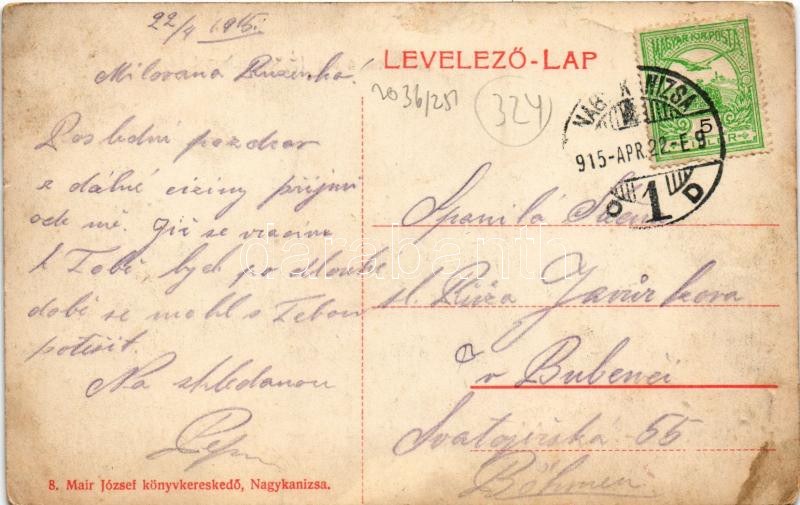 22/4 1915.
Milovaná Růženko!
Poslední pozdrav
z dálné ciziny přijmi
ode mě. Již se vracím
k Tobě, bych po dlouhé
době se mohl s Tebou
potěšit.
Na shledanou
Pepa
8. Mair József könyvkereskedő, Nagykanizsa.
LEVELEZŐ-LAP
2036/251
324
MAGYAR KIR. POSTA
5
NAGYKANIZSA
915-APR.22-E.9
1 D
Spanilá Slečna
sl. Růža Javůrkova
v Bubenči
Svatojirská 55
Böhmen.
darabanth